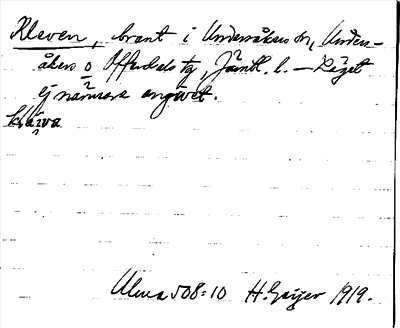 Kleven, brant i Undersåkers sn, Under-
åkers o Offerdals tg, Jämtl. l. – Läget
ej närmare angivet.
kläva
Ulma 508:10 H. Geijer 1919.